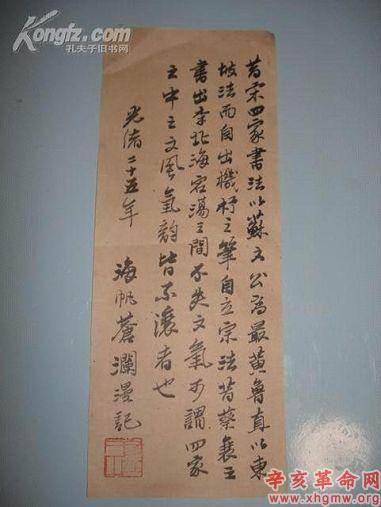 Kongfz.com
孔夫子旧书网
昔宋四家書法以蘇文公為最黃魯直以東
坡法而自出機杼之筆自立宗法昔蔡襄之
書出李北海宕蕩之間不失文氣可謂四家
之中之文風氣韵皆不讓者也
光緒二十五年
海帆蒼瀾漫記
辛亥革命网
www.xhgmw.org